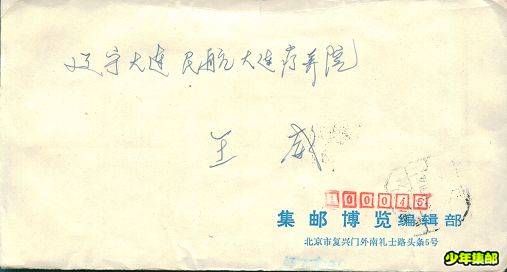 辽宁大连民航大连疗养院
王 威
100045
集邮博览编辑部
北京市复兴门外南礼士路头条5号
少年集邮